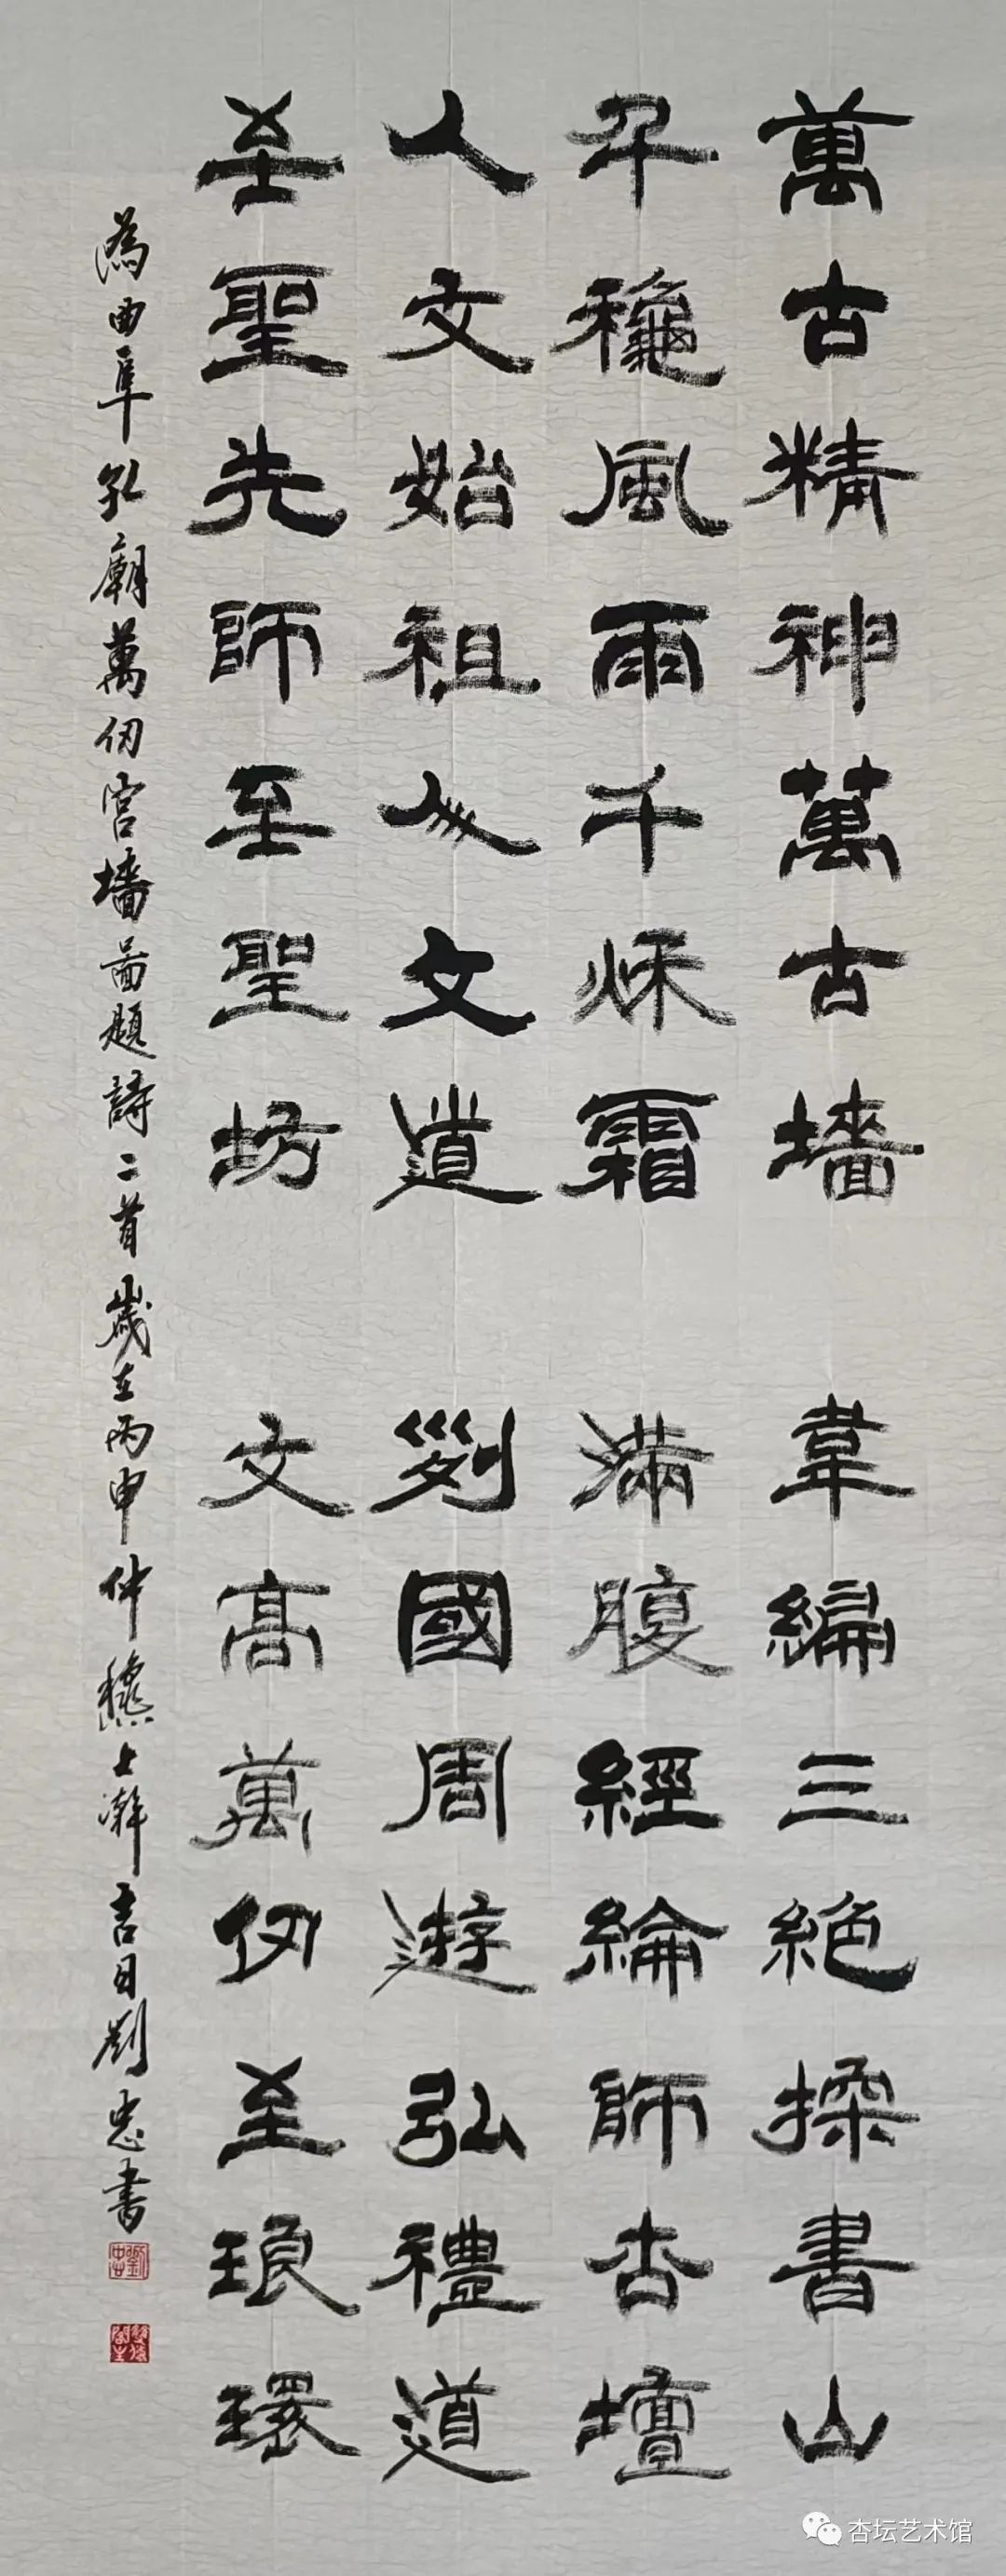 萬古精神萬古墻
千穐風雨千秌霜
人文始祖人文道
至聖先師至聖坊
韋編三絕探書山
滿腹經綸師杏壇
列國周遊弘禮道
文高萬仞至琅環
為曲阜孔廟萬仞宮墻啚題詩二首歲在丙申仲龝上澣吉日劉忠書
劉忠
杏坛艺术馆